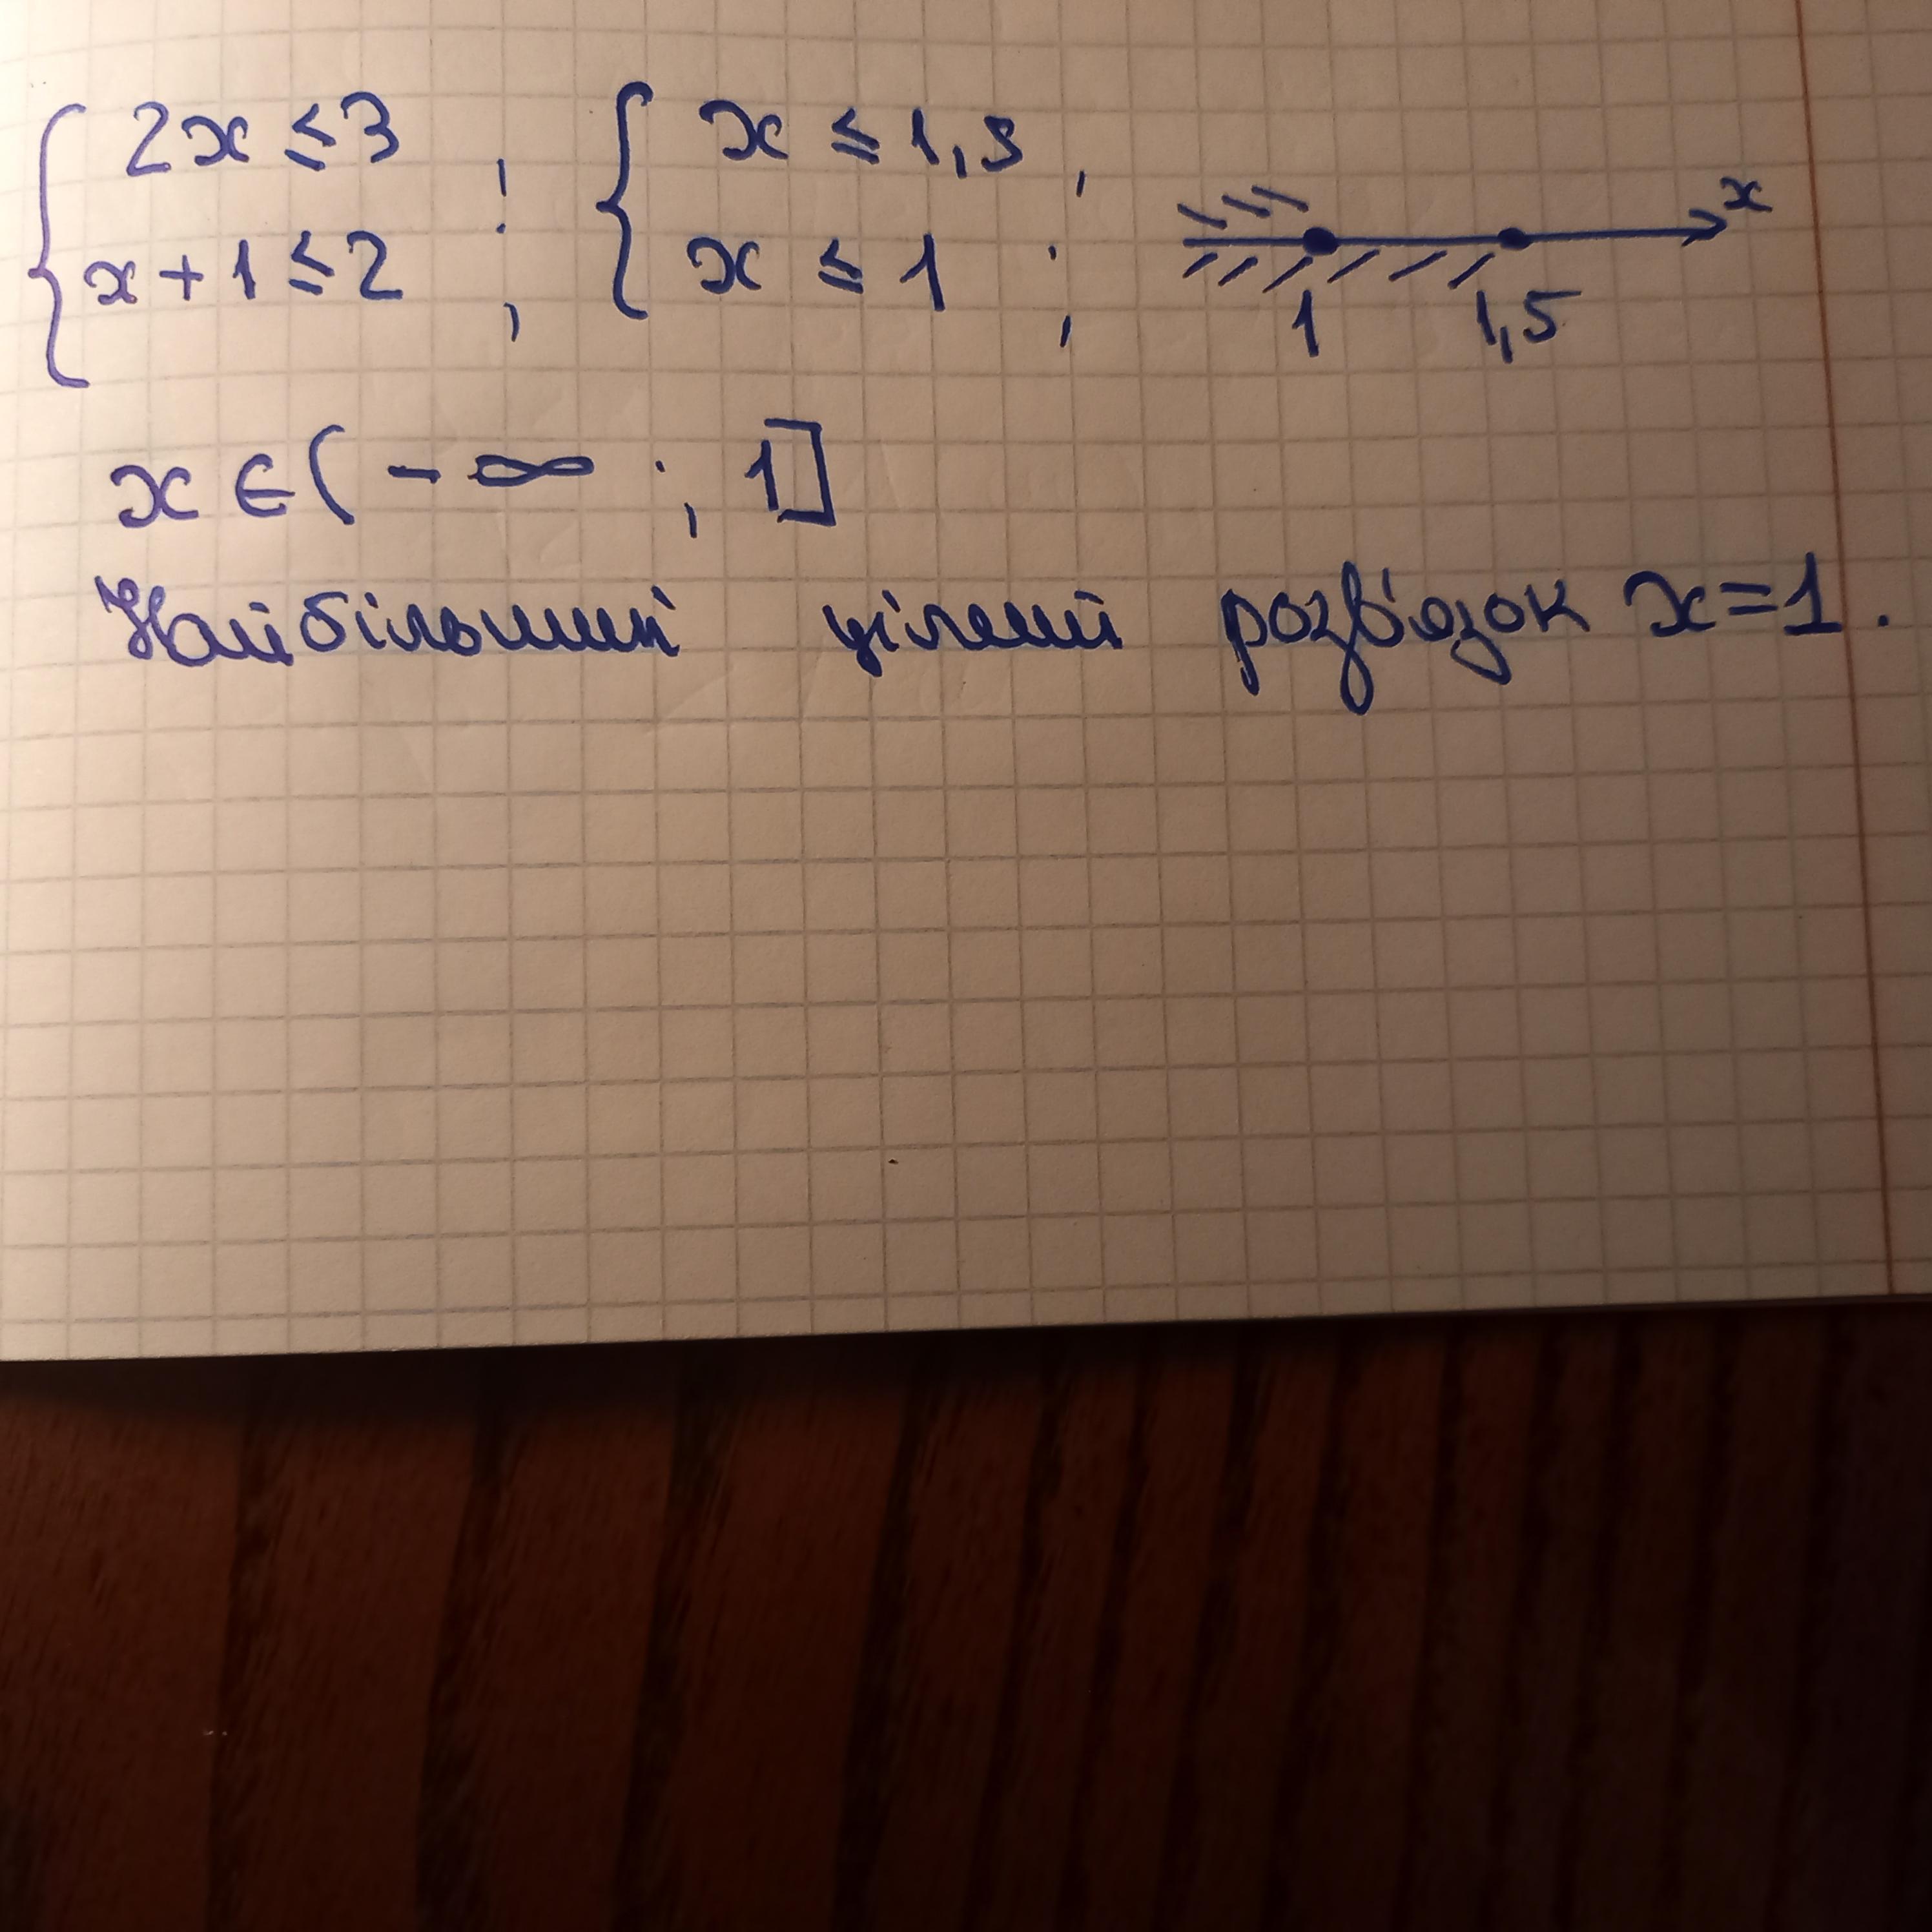 { 2x ≤ 3 ; { x ≤ 1,5 ; x
{ x + 1 ≤ 2 ; { x ≤ 1 ; 1 1,5
x ∈ ( - ∞ ; 1]
Найбільший цілий розв'язок x = 1 .